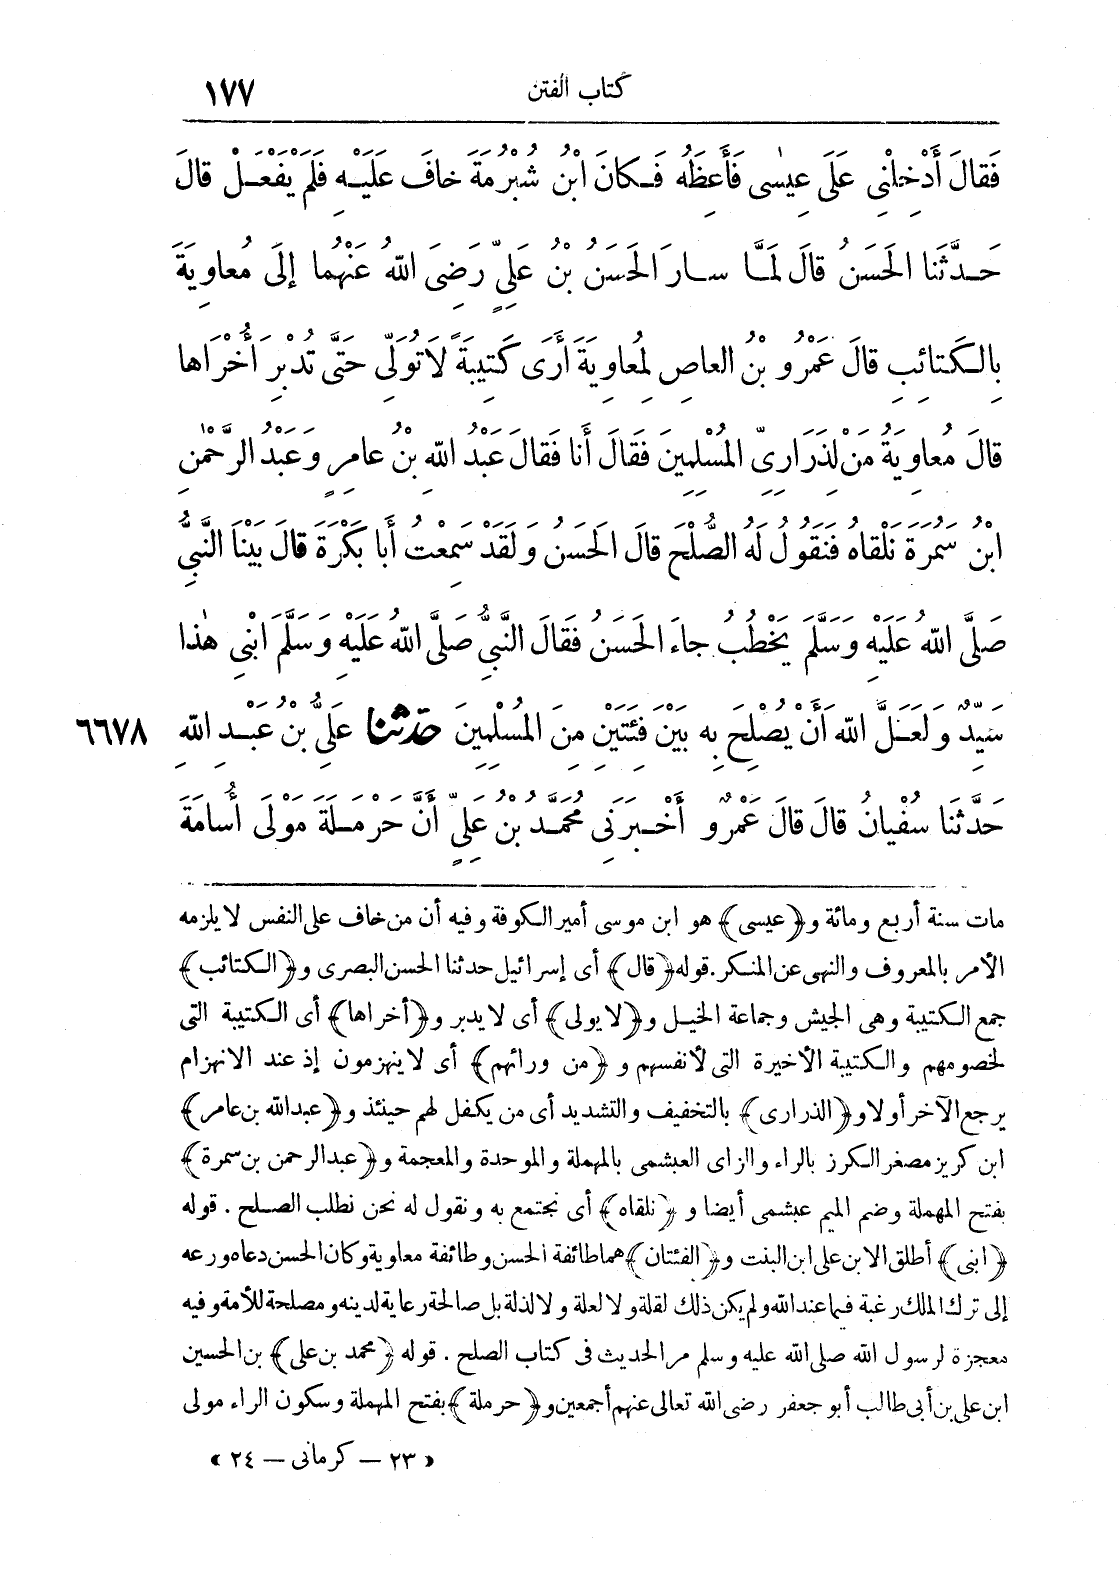 ١٧٧ كتاب الفتن
فَقَالَ أَدْخِلْنِي عَلَى عِيسَى فَأَعِظَهُ فَكَانَ ابْنُ شُبْرُمَةَ خَافَ عَلَيْهِ فَلَمْ يَفْعَلْ قَالَ
حَدَّثَنَا الْحَسَنُ قَالَ لَمَّا سَارَ الْحَسَنُ بْنُ عَلِيٍّ رَضِيَ اللهُ عَنْهُمَا إِلَى مُعَاوِيَةَ
بِالْكَتَائِبِ قَالَ عَمْرُو بْنُ الْعَاصِ لِمُعَاوِيَةَ أَرَى كَتِيبَةً لَا تُوَلِّي حَتَّى تُدْبِرَ أُخْرَاهَا
قَالَ مُعَاوِيَةُ مَنْ لِذَرَارِيِّ الْمُسْلِمِينَ فَقَالَ أَنَا فَقَالَ عَبْدُ اللهِ بْنُ عَامِرٍ وَعَبْدُ الرَّحْمٰنِ
ابْنُ سَمُرَةَ نَلْقَاهُ فَنَقُولُ لَهُ الصُّلْحَ قَالَ الْحَسَنُ وَلَقَدْ سَمِعْتُ أَبَا بَكْرَةَ قَالَ بَيْنَا النَّبِيُّ
صَلَّى اللهُ عَلَيْهِ وَسَلَّمَ يَخْطُبُ جَاءَ الْحَسَنُ فَقَالَ النَّبِيُّ صَلَّى اللهُ عَلَيْهِ وَسَلَّمَ ابْنِي هٰذَا
سَيِّدٌ وَلَعَلَّ اللهَ أَنْ يُصْلِحَ بِهِ بَيْنَ فِئَتَيْنِ مِنَ الْمُسْلِمِينَ حَدَّثَنَا عَلِيُّ بْنُ عَبْدِ اللهِ ٦٦٧٨
حَدَّثَنَا سُفْيَانُ قَالَ قَالَ عَمْرٌو أَخْبَرَنِي مُحَمَّدُ بْنُ عَلِيٍّ أَنَّ حَرْمَلَةَ مَوْلَى أُسَامَةَ
مات سنة أربع ومائة و﴿عيسى﴾ هو ابن موسى أمير الكوفة وفيه أن من خاف على النفس لا يلزمه
الأمر بالمعروف والنهى عن المنكر. قوله ﴿قال﴾ أى إسرائيل حدثنا الحسن البصرى و﴿الكتائب﴾
جمع الكتيبة وهى الجيش وجماعة الخيل و﴿لا يولى﴾ أى لا يدبر و﴿أخراها﴾ أى الكتيبة التى
لخصومهم والكتيبة الأخيرة التى لأنفسهم و ﴿من ورائهم﴾ أى لا ينهزمون إذ عند الانهزام
يرجع الآخر أولا و﴿الذرارى﴾ بالتخفيف والتشديد أى من يكفل لهم حينئذ و﴿عبدالله بن عامر﴾
ابن كريز مصغر الكرز بالراء والزاى العبشمى بالمهملة والموحدة والمعجمة و﴿عبدالرحمن بن سمرة﴾
بفتح المهملة وضم الميم عبشمى أيضا و ﴿نلقاه﴾ أى نجتمع به ونقول له نحن نطلب الصلح . قوله
﴿ابنى﴾ أطلق الابن على ابن البنت و﴿الفئتان﴾ هما طائفة الحسن وطائفة معاوية وكان الحسن دعاه ورعه
إلى ترك الملك رغبة فيما عند الله ولم يكن ذلك لقلة ولا لعلة ولا لذلة بل صالحة رعاية لدينه ومصلحة للأمة وفيه
معجزة لرسول الله صلى الله عليه وسلم مر الحديث فى كتاب الصلح . قوله ﴿محمد بن على﴾ بن الحسين
ابن على بن أبى طالب أبو جعفر رضى الله تعالى عنهم أجمعين و﴿حرملة﴾ بفتح المهملة وسكون الراء مولى
« ٢٣ – كرمانى – ٢٤ »